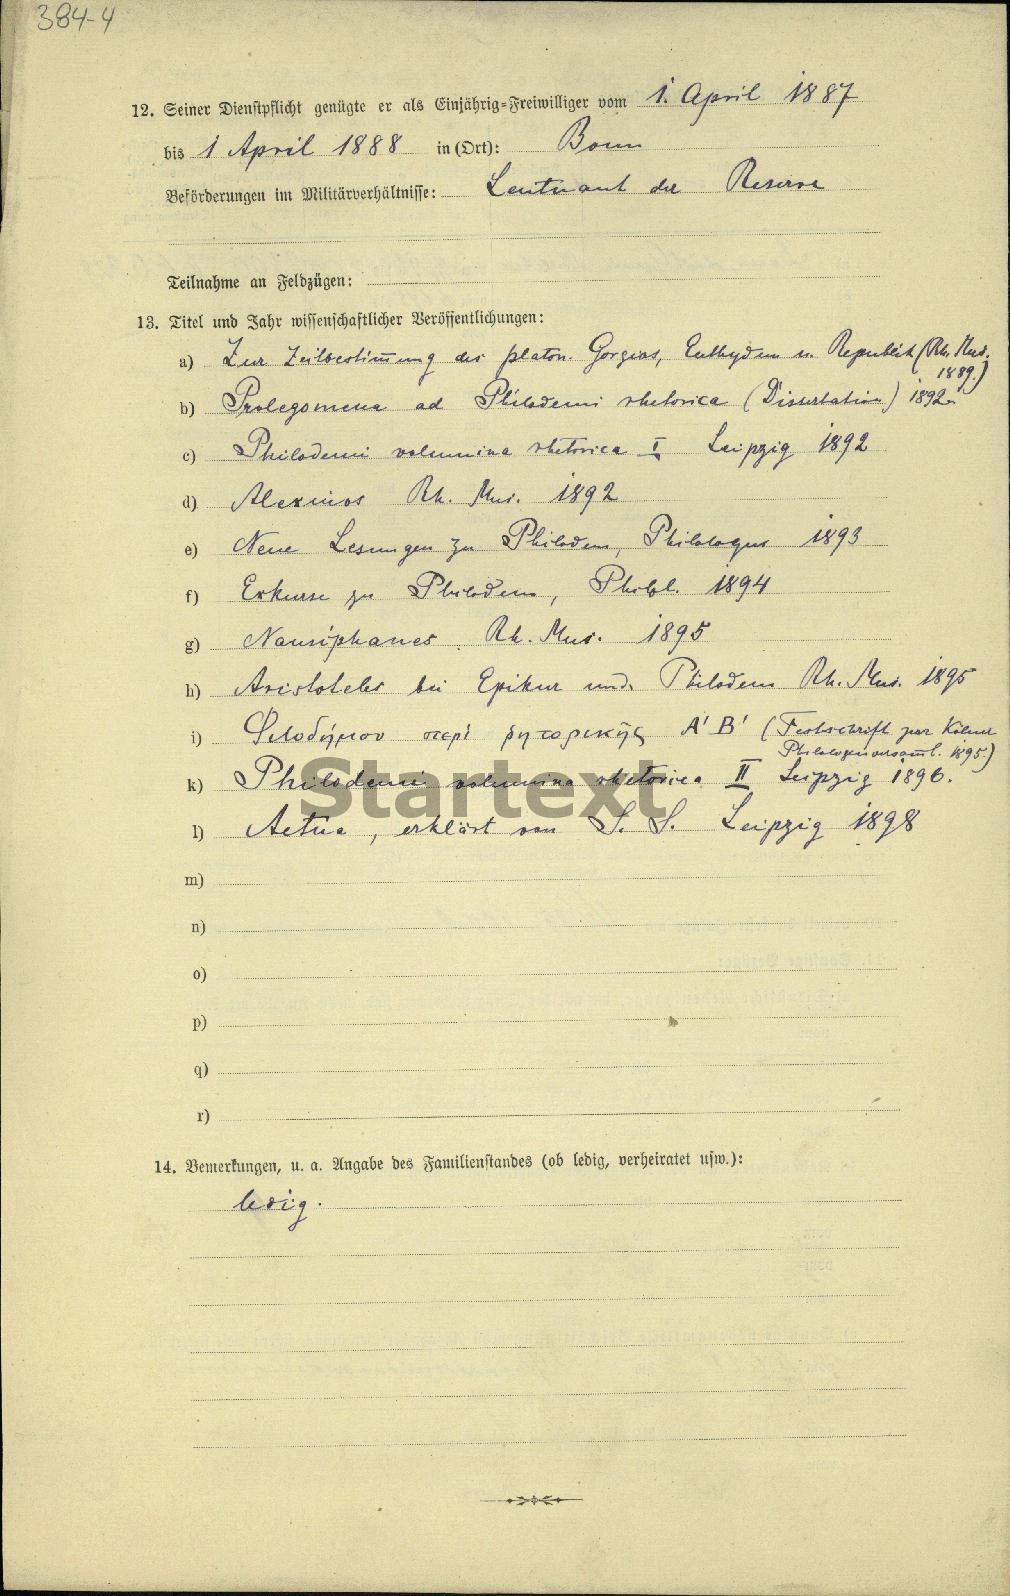 384-4
12. Seiner Dienstpflicht genügte er als Einjährig-Freiwilliger vom 1. April 1887
bis 1 April 1888 in (Ort): Bonn
Beförderungen im Militärverhältnisse: Leutnant der Reserve
Teilnahme an Feldzügen:
13. Titel und Jahr wissenschaftlicher Veröffentlichungen:
a) Zur Zeitbestim̄ung des platon. Gorgias, Euthydem u. Republik (Rh. Mus.
1889.)
b) Prolegomena ad Philodemi rhetorica (Dissertation) 1892
c) Philodemi volumina rhetorica I Leipzig 1892
d) Alexinos Rh. Mus. 1892
e) Neue Lesungen zu Philodem, Philologus 1893
f) Exkurse zu Philodem, Philol. 1894
g) Nausiphanes Rh. Mus. 1895
h) Aristoteles bei Epikur und Philodem Rh. Mus. 1895
i) Φιλοδήμου περὶ ῥητορικῆς Α' Β' (Festschrift zur Kölner
Philologenversam̄l. 1895)
k) Philodemi volumina rhetorica II Leipzig 1896.
Startext
l) Aetna, erklärt von S. S. Leipzig 1898
m)
n)
o)
p)
q)
r)
14. Bemerkungen, u. a. Angabe des Familienstandes (ob ledig, verheiratet usw.):
ledig.